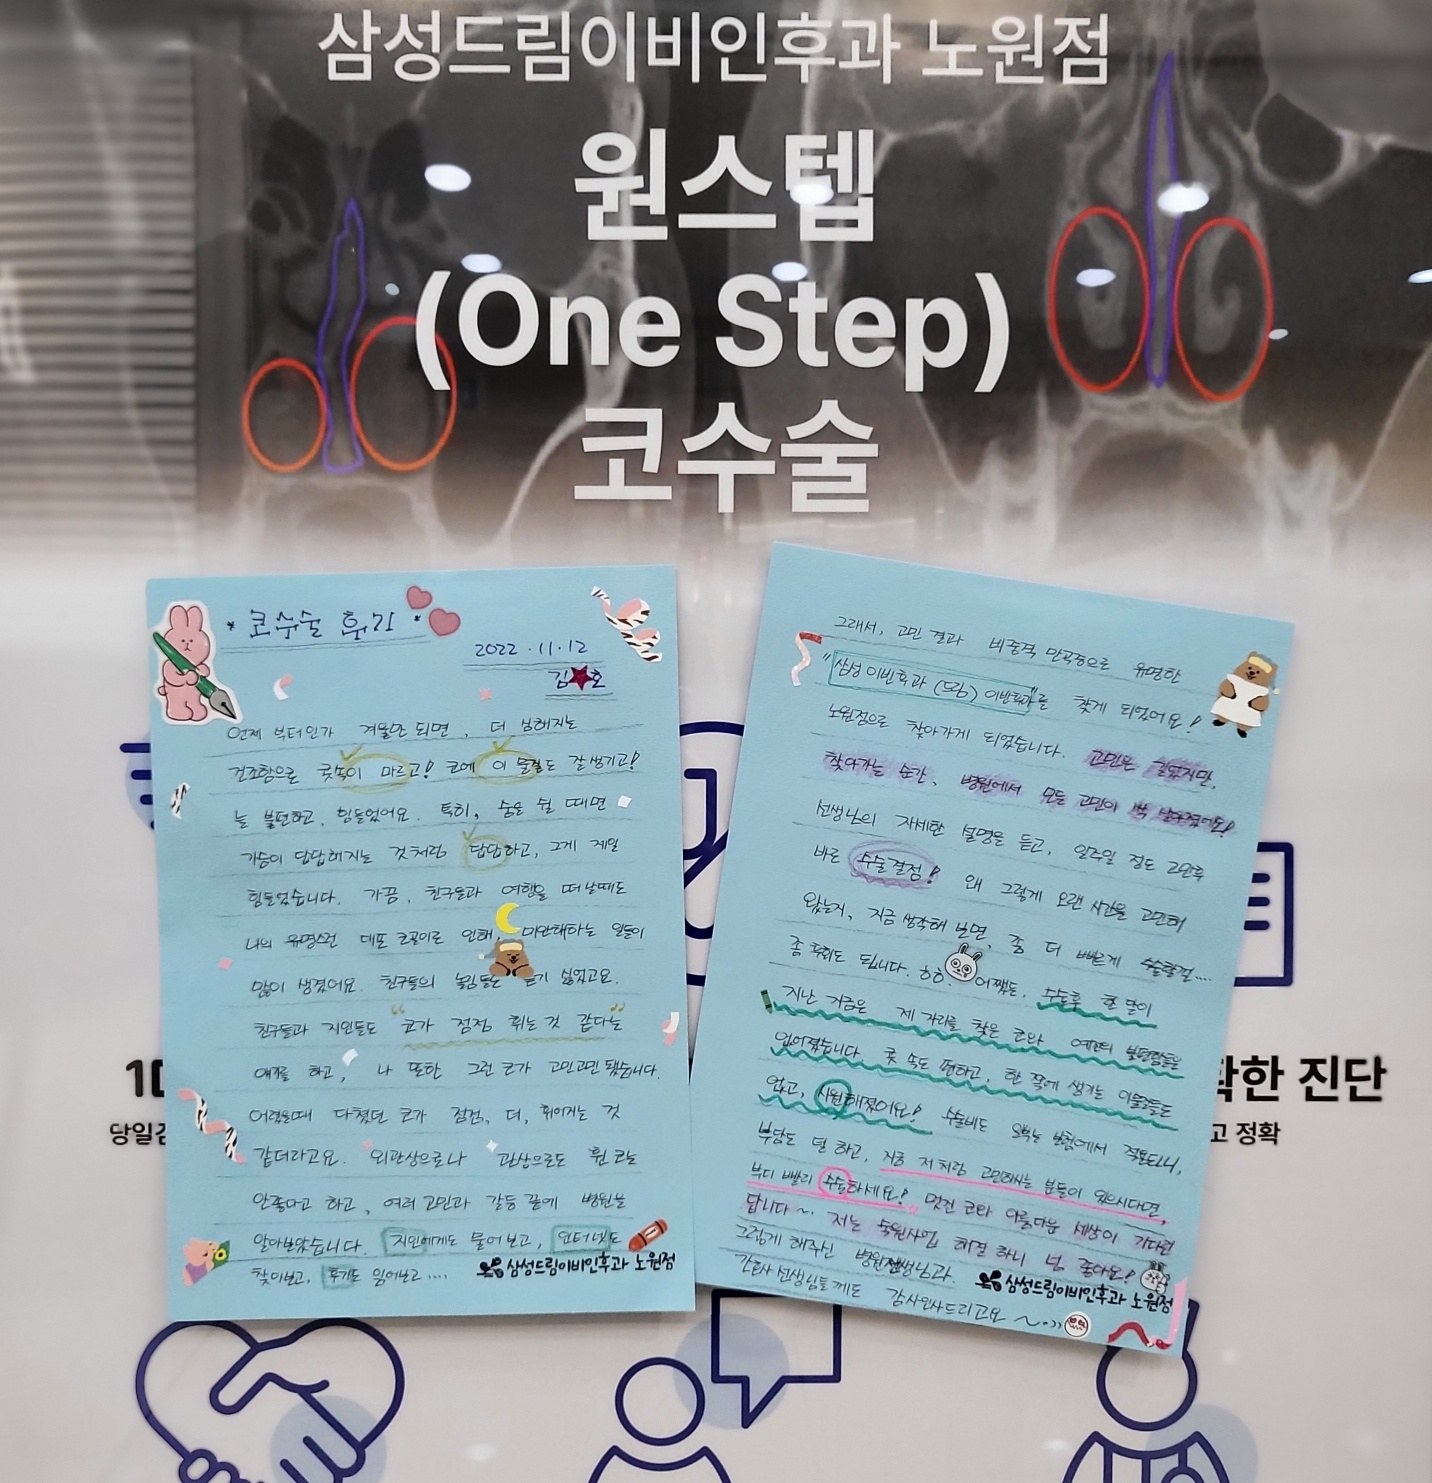 삼성드림이비인후과 노원점
원스텝
(One Step)
코수술
* 코수술 후기 *
2022 . 11 . 12
김★호
언제 부터인가 겨울만 되면, 더 심해지는
건조함으로 콧속이 마르고! 코에 이물질도 잘 생기고!
늘 불편하고, 힘들었어요. 특히, 숨을 쉴 때면
가슴이 답답해지는 것처럼 답답하고, 그게 제일
힘들었습니다. 가끔, 친구들과 여행을 떠날때도
나의 유명스런 데포 코골이로 인해, 미안해하는 일들이
많이 생겼어요. 친구들의 놀림들도 듣기 싫었고요.
친구들과 지인들도 "코가 점점 휘는 것 같다"는
얘기를 하고, 나 또한 그런 코가 고민고민 됐습니다.
어렸을때 다쳤던 코가 점점, 더, 휘어지는 것
같더라고요. 외관상으로나 관상으로도 휜 코는
안좋다고 하고, 여러 고민과 갈등 끝에 병원을
알아보았습니다. 지인에게도 물어보고, 인터넷도
찾아보고, 후기도 읽어보고 ....
삼성드림이비인후과 노원점
그래서, 고민 결과 비중격 만곡증으로 유명한
"삼성 이빈후과 (드림) 이빈후과"를 찾게 되었어요!
노원점으로 찾아가게 되었습니다. 고민은 길었지만,
찾아가는 순간, 병원에서 모든 고민이 싹 날아갔어요!
선생님의 자세한 설명을 듣고, 일주일 정도 고민후
바로 수술결정! 왜 그렇게 오랜 시간을 고민해
왔는지, 지금 생각해 보면, 좀 더 빠르게 수술할걸....
좀 후회도 됩니다. ㅎㅎ. 어쨌든, 수술후 한 달이
지난 지금은 제 자리를 찾은 코와 예전의 불편함들은
없어졌습니다. 콧 속도 편하고, 한 쪽에 생기는 이물질들도
없고, 시원해졌어요! 수술비도 오히려 병원에서 적튼다니,
부담도 덜 하고, 지금 저처럼 고민하시는 분들이 있으시다면,
부디 빨리 수술하세요! 멋진 코와 아름다운 세상이 기다린
답니다~. 저는 숙원사업 해결 하니 넘 좋아요!
그렇게 해주신 병원선생님과.
간호사 선생님들께도 감사인사드리고요 ~.))
삼성드림이비인후과 노원점
1D
당일
확한 진단
고 정확